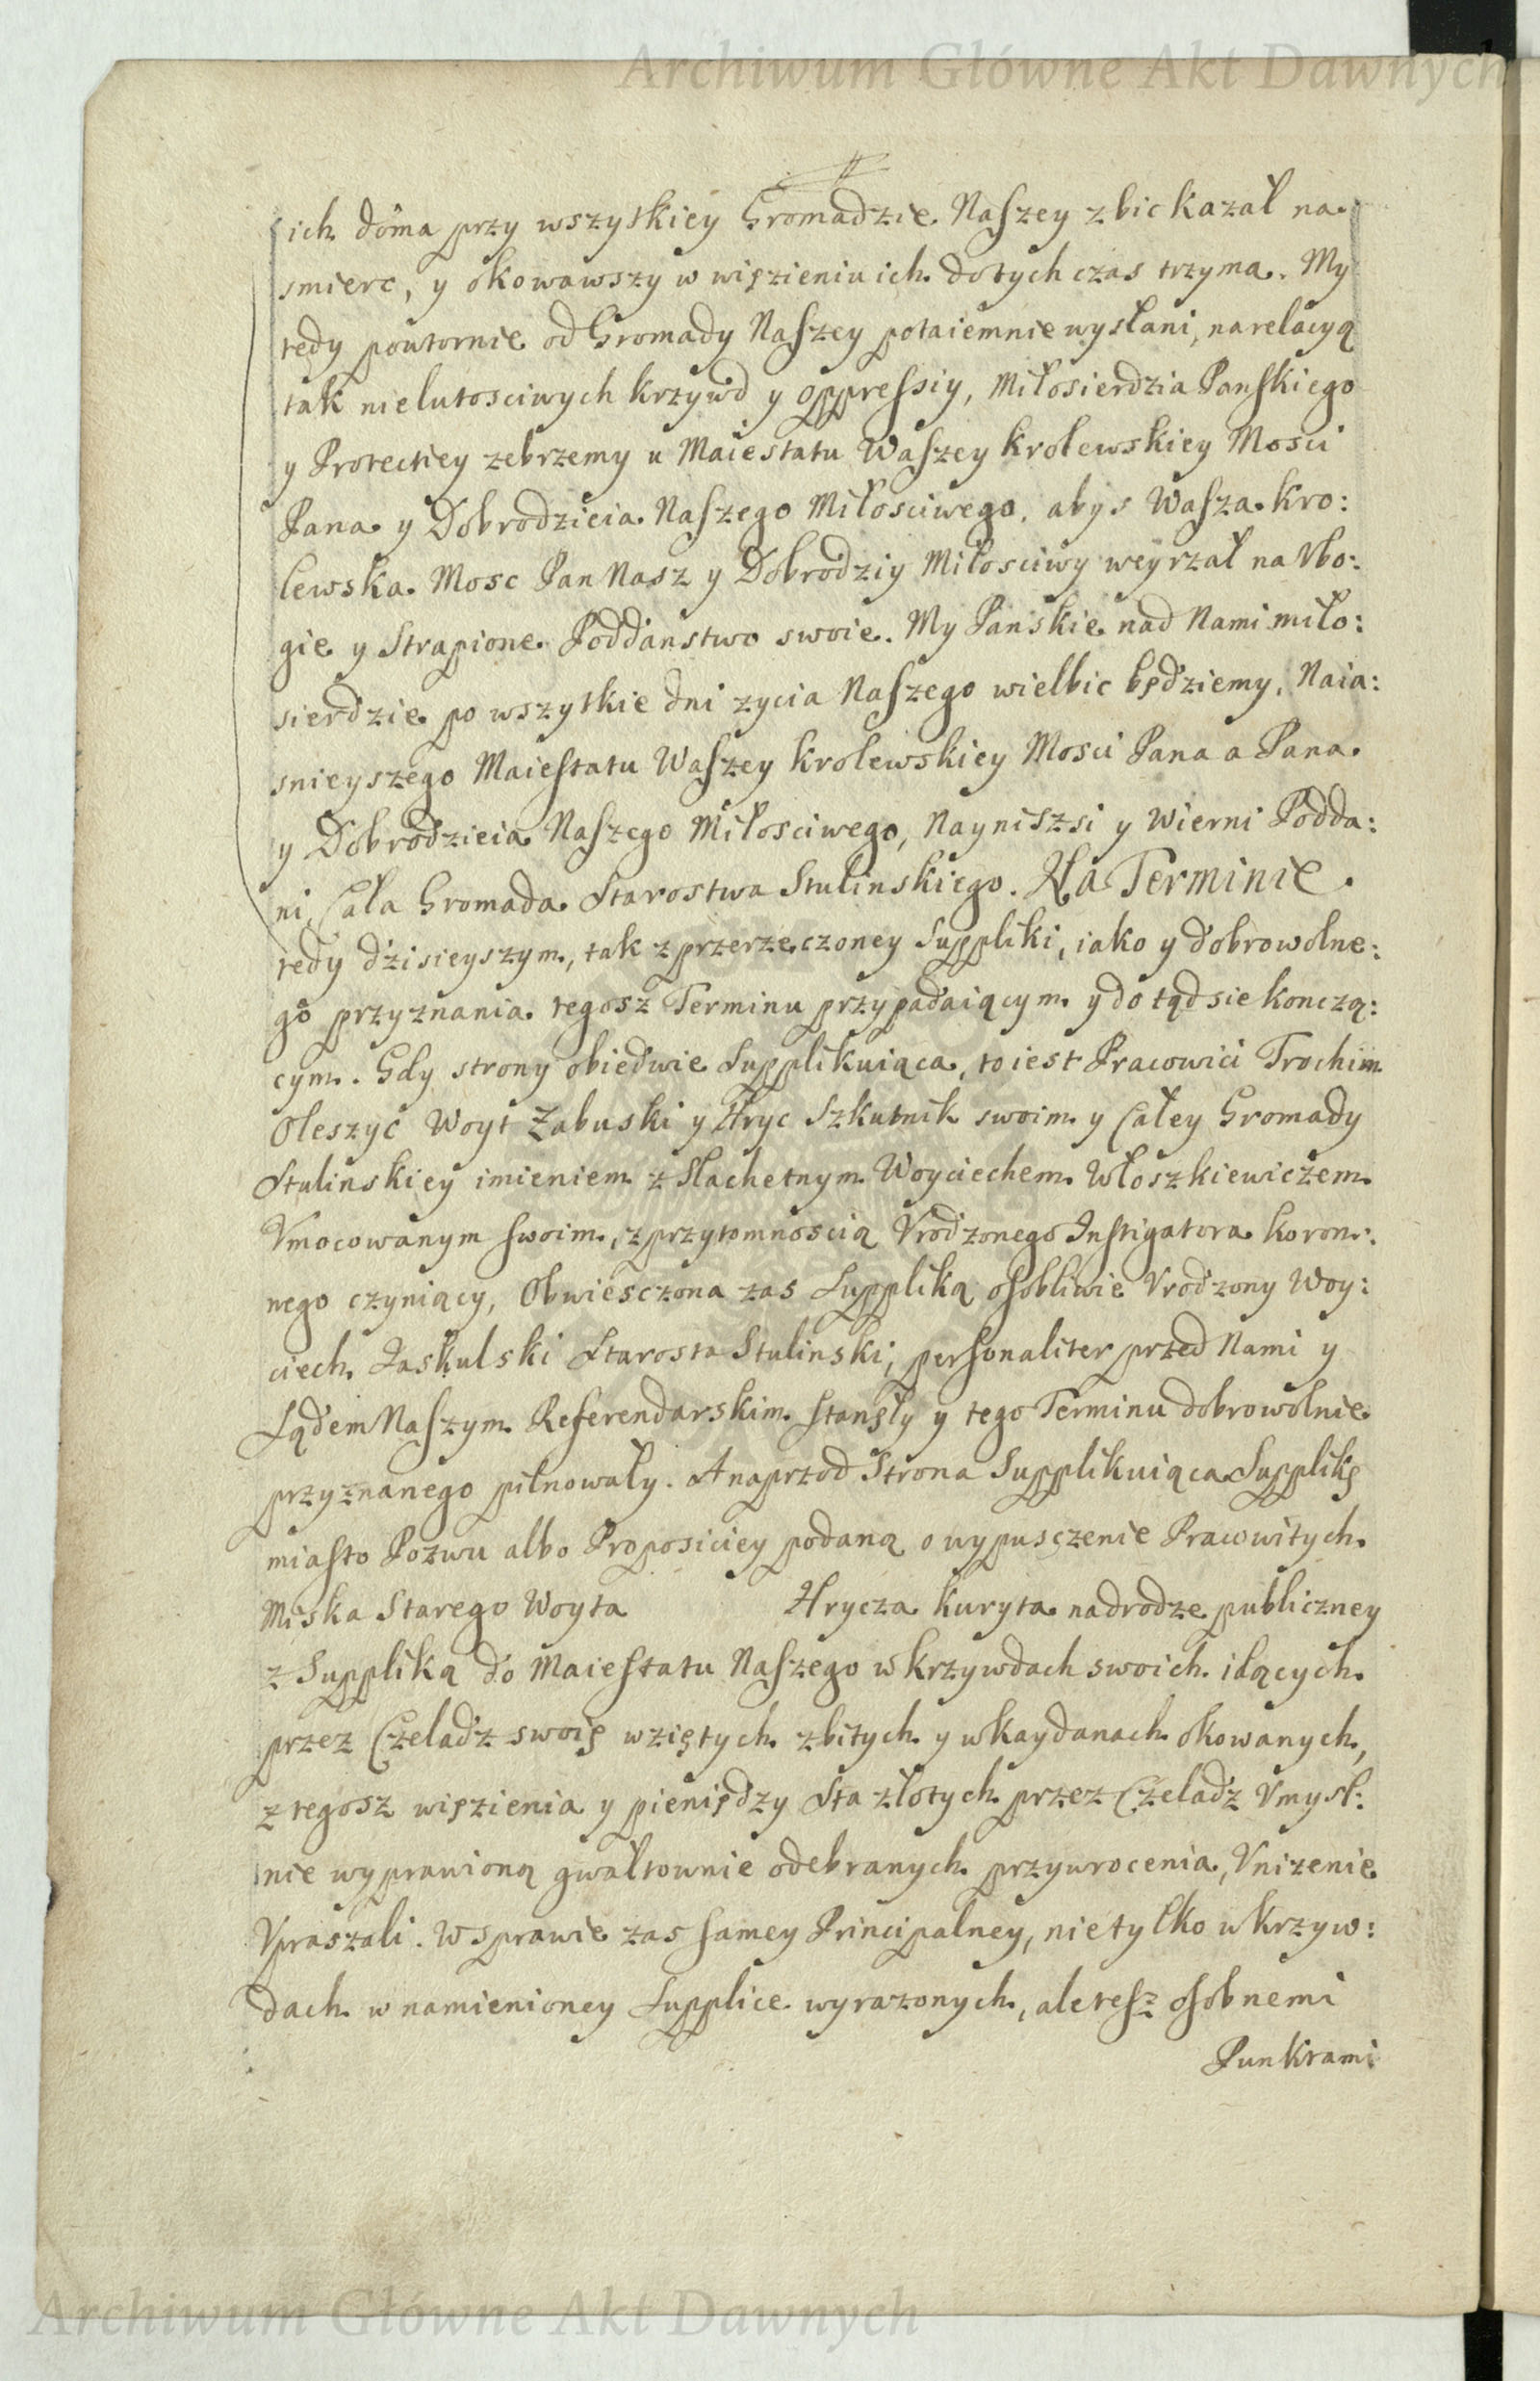 Archiwum Główne Akt Dawnych
ich doma przy wszytkiey Gromadzie Naszey zbic kazał na
smierc, y okowawszy w więzieniu ich dotych czas trzyma. My
tedy poutornie od Gromady Naszey potaiemnie wysłani, na relacyą
tak nielutosciwych krzywd y oppressiy, Miłosierdzia Panskiego
y Protectiey zebrzemy u Maiestatu Waszey krolewskiey Mosci
Pana y Dobrodzieia Naszego Miłosciwego, abys Wasza kro:
lewska Mosc Pan Nasz y Dobrodziy Miłosciwy weyrzał na Vbo:
gie y Strapione Poddanstwo swoie. My Panskie nad Nami miło:
sierdzie po wszytkie dni zycia Naszego wielbic będziemy, Naia:
snieyszego Maiestatu Waszey krolewskiey Mosci Pana a Pana
y Dobrodzieia Naszego Miłosciwego, Nayniszsi y Wierni Podda:
ni, Cała Gromada Starostwa Stulinskiego. Na Terminie
tedy dzisieyszym, tak z przerzeczoney Suppliki, iako y dobrowolne:
go przyznania tegosz Terminu przypadaiącym y do tąd sie koncz​ą:
cym. Gdy strony obiedwie Supplikuiąca, to iest Pracowici Trochim
Oleszyc Woyt Zabuski y Hryc Szkutnik swoim y Całey Gromady
Stulinskiey imieniem z Slachetnym Woyciechem Włoszkiewiczem
Vmocowanym swoim, z przytomnoscią Vrodzonego Instigatora koron:
nego czyniący, Obwiesczona zas Suppliką osobliwie Vrodzony Woy:
ciech Jaskulski Starosta Stulinski, personaliter przed Nami y
Sądem Naszym Referendarskim stanęły y tego Terminu dobrowolnie
przyznanego pilnowały. A naprzod Strona Supplikuiąca Supplikę
miasto Pozwu albo Proposiciey podaną o wypusczenie Pracowitych
Miska Starego Woyta Hrycza kuryta na drodze publiczney
z Suppliką do Maiestatu Naszego w krzywdach swoich idących
przez Czeladz swoię wziętych zbitych y w kaydanach okowanych,
z tegosz więzienia y pieniędzy Sta złotych przez Czeladz Vmysl:
nie wyprawioną gwałtownie odebranych przywrocenia, Vnizenie
Vpraszali. W sprawie zas samey Principalney, nie tylko w krzyw:
dach w namienioney Supplice wyrazonych, ale tesz osobnemi
Punktami
Archiwum Główne Akt Dawnych